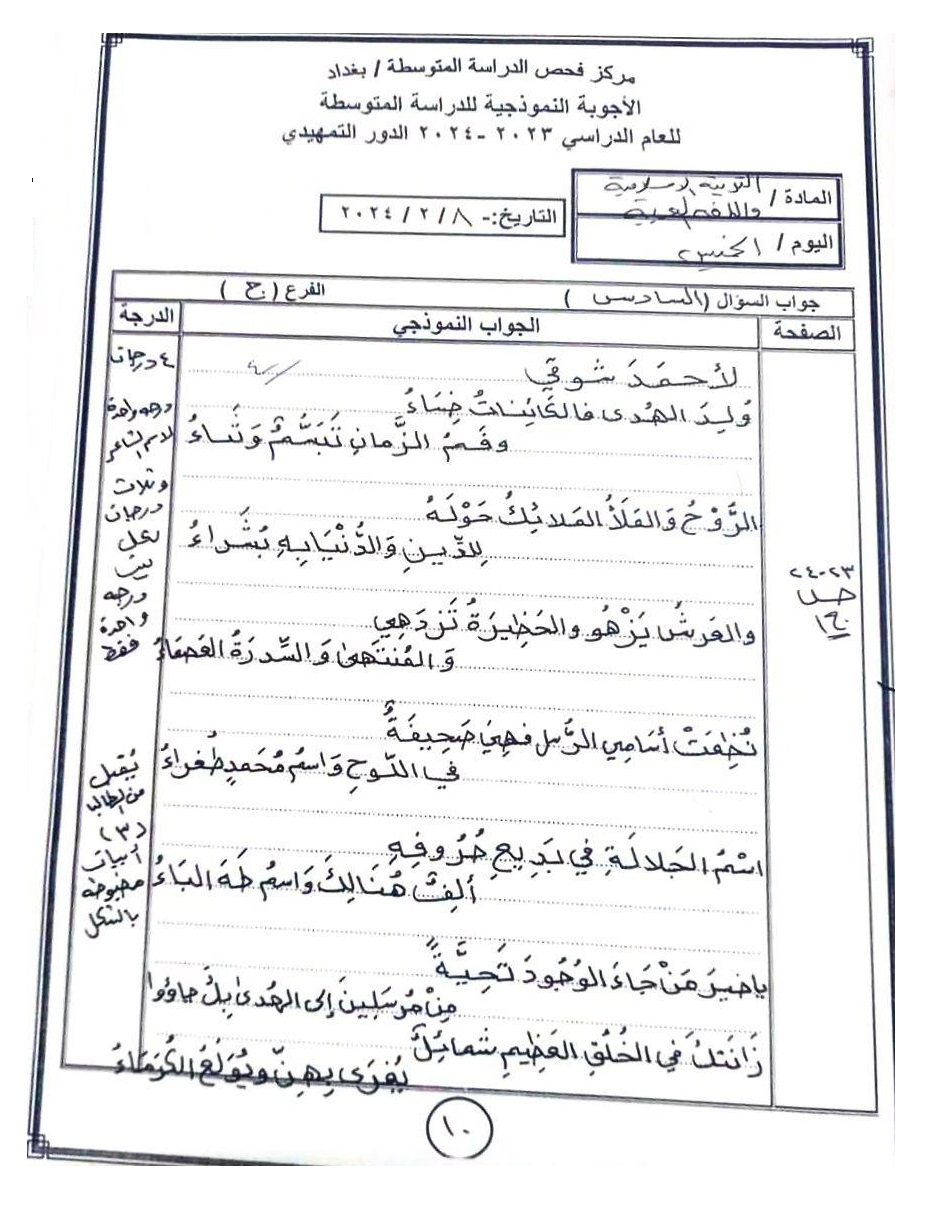 مركز فحص الدراسة المتوسطة / بغداد
الأجوبة النموذجية للدراسة المتوسطة
للعام الدراسي ٢٠٢٣ -٢٠٢٤ الدور التمهيدي
المادة / التربية الاسلامية
واللغة العربية
اليوم / الخميس
التاريخ:- ٨ / ٢ / ٢٠٢٤
جواب السؤال (السادس) الفرع ( ج )
الصفحة
الجواب النموذجي
الدرجة
لأحمَدَ شوقي
وُلِدَ الهُدى فالكائِناتُ ضِيَاءُ
وَفَمُ الزَّمانِ تَبَسُّمٌ وَثَناءُ
الرُّوحُ وَالمَلَأُ المَلائِكُ حَوْلَهُ
لِلدِّينِ وَالدُّنْيَا بِهِ بُشَراءُ
والعَرشُ يَزْهُو والحَظِيرَةُ تَزدَهِي
وَالمُنتَهَى وَالسِّدرَةُ العَصمَاءُ
نُظِمَتْ أسَامِي الرُّسلِ فهِيَ صَحِيفَةٌ
في اللَّوحِ وَاسمُ مُحَمدٍ طُغراءُ
اسْمُ الجَلالَةِ في بَدِيعِ حُرُوفِهِ
ألِفٌ هُنَالِكَ وَاسمُ طَهَ البَاءُ
ياخيرَ مَنْ جَاءَ الوُجُودَ تَحِيَّةً
مِنْ مُرسَلِينَ إلى الهُدىٰ بِكَ جاؤوا
زَانَتكَ في الخُلُقِ العَظِيمِ شمائِلٌ
يُغرَى بِهِنَّ ويُولَعُ الكُرَمَاءُ
٢٣-٢٤
ص
١ج
٤ درجات
درجه واحدة
لاسم الشاعر
وثلاث
درجات
لكل
بيت
درجه
واحدة
فقط
يُقبل
من الطالب
(٣)
أبيات
مضبوطه
بالشكل
١٠